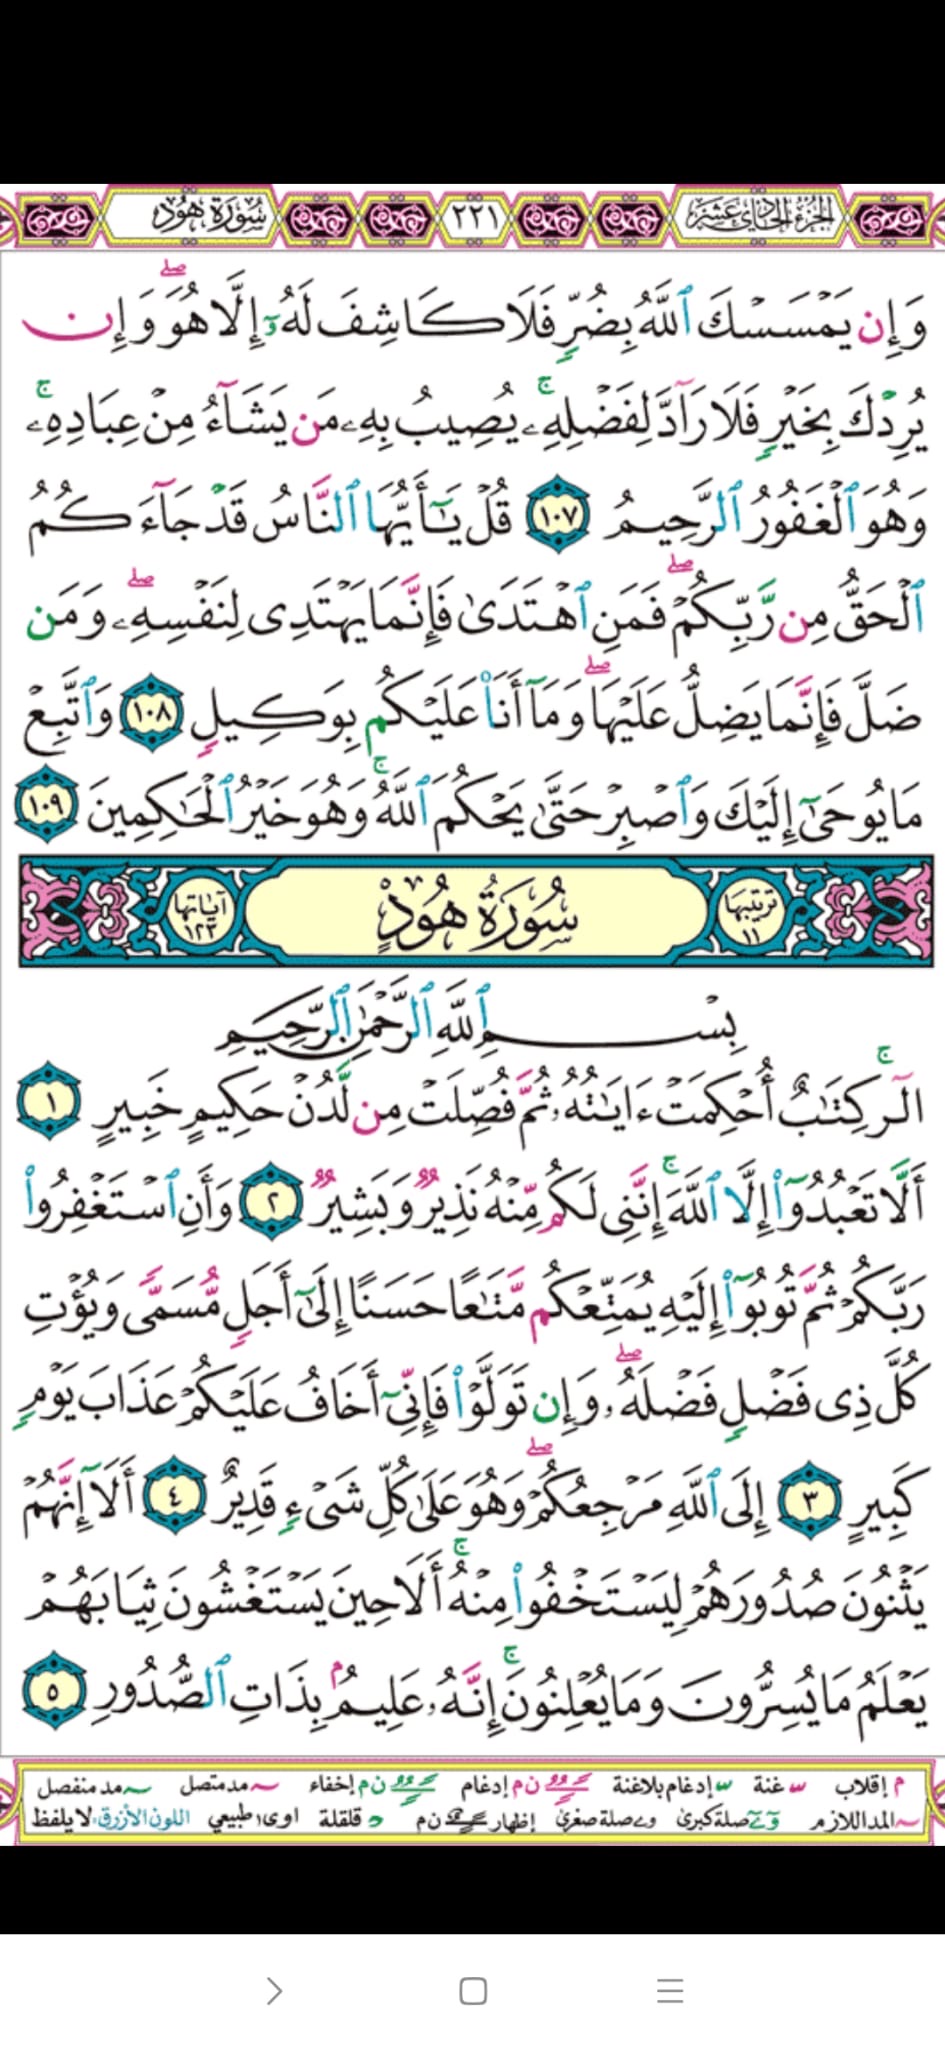 الجزء الحادي عشر ٢٢١ سورة هود
وَإِن يَمْسَسْكَ ٱللَّهُ بِضُرٍّ فَلَا كَاشِفَ لَهُۥٓ إِلَّا هُوَ ۖ وَإِن
يُرِدْكَ بِخَيْرٍ فَلَا رَآدَّ لِفَضْلِهِۦ ۚ يُصِيبُ بِهِۦ مَن يَشَآءُ مِنْ عِبَادِهِۦ ۚ
وَهُوَ ٱلْغَفُورُ ٱلرَّحِيمُ ١٠٧ قُلْ يَـٰٓأَيُّهَا ٱلنَّاسُ قَدْ جَآءَكُمُ
ٱلْحَقُّ مِن رَّبِّكُمْ ۖ فَمَنِ ٱهْتَدَىٰ فَإِنَّمَا يَهْتَدِى لِنَفْسِهِۦ ۖ وَمَن
ضَلَّ فَإِنَّمَا يَضِلُّ عَلَيْهَا ۖ وَمَآ أَنَا۠ عَلَيْكُم بِوَكِيلٍ ١٠٨ وَٱتَّبِعْ
مَا يُوحَىٰٓ إِلَيْكَ وَٱصْبِرْ حَتَّىٰ يَحْكُمَ ٱللَّهُ ۚ وَهُوَ خَيْرُ ٱلْحَـٰكِمِينَ ١٠٩
ترتيبها ١١ سُورَةُ هُودٍ آياتها ١٢٣
بِسْمِ ٱللَّهِ ٱلرَّحْمَـٰنِ ٱلرَّحِيمِ
الٓر ۚ كِتَـٰبٌ أُحْكِمَتْ ءَايَـٰتُهُۥ ثُمَّ فُصِّلَتْ مِن لَّدُنْ حَكِيمٍ خَبِيرٍ ١
أَلَّا تَعْبُدُوٓا۟ إِلَّا ٱللَّهَ ۚ إِنَّنِى لَكُم مِّنْهُ نَذِيرٌ وَبَشِيرٌ ٢ وَأَنِ ٱسْتَغْفِرُوا۟
رَبَّكُمْ ثُمَّ تُوبُوٓا۟ إِلَيْهِ يُمَتِّعْكُم مَّتَـٰعًا حَسَنًا إِلَىٰٓ أَجَلٍ مُّسَمًّى وَيُؤْتِ
كُلَّ ذِى فَضْلٍ فَضْلَهُۥ ۖ وَإِن تَوَلَّوْا۟ فَإِنِّىٓ أَخَافُ عَلَيْكُمْ عَذَابَ يَوْمٍ
كَبِيرٍ ٣ إِلَى ٱللَّهِ مَرْجِعُكُمْ ۖ وَهُوَ عَلَىٰ كُلِّ شَىْءٍ قَدِيرٌ ٤ أَلَآ إِنَّهُمْ
يَثْنُونَ صُدُورَهُمْ لِيَسْتَخْفُوا۟ مِنْهُ ۚ أَلَا حِينَ يَسْتَغْشُونَ ثِيَابَهُمْ
يَعْلَمُ مَا يُسِرُّونَ وَمَا يُعْلِنُونَ ۚ إِنَّهُۥ عَلِيمٌۢ بِذَاتِ ٱلصُّدُورِ ٥
م إقلاب غنة إدغام بلاغنة ن م إدغام ن م إخفاء مد متصل مد منفصل
المد اللازم صلة كبرى صلة صغرى إظهار ن م قلقلة اوي طبيعي اللون الأزرق: لا يلفظ